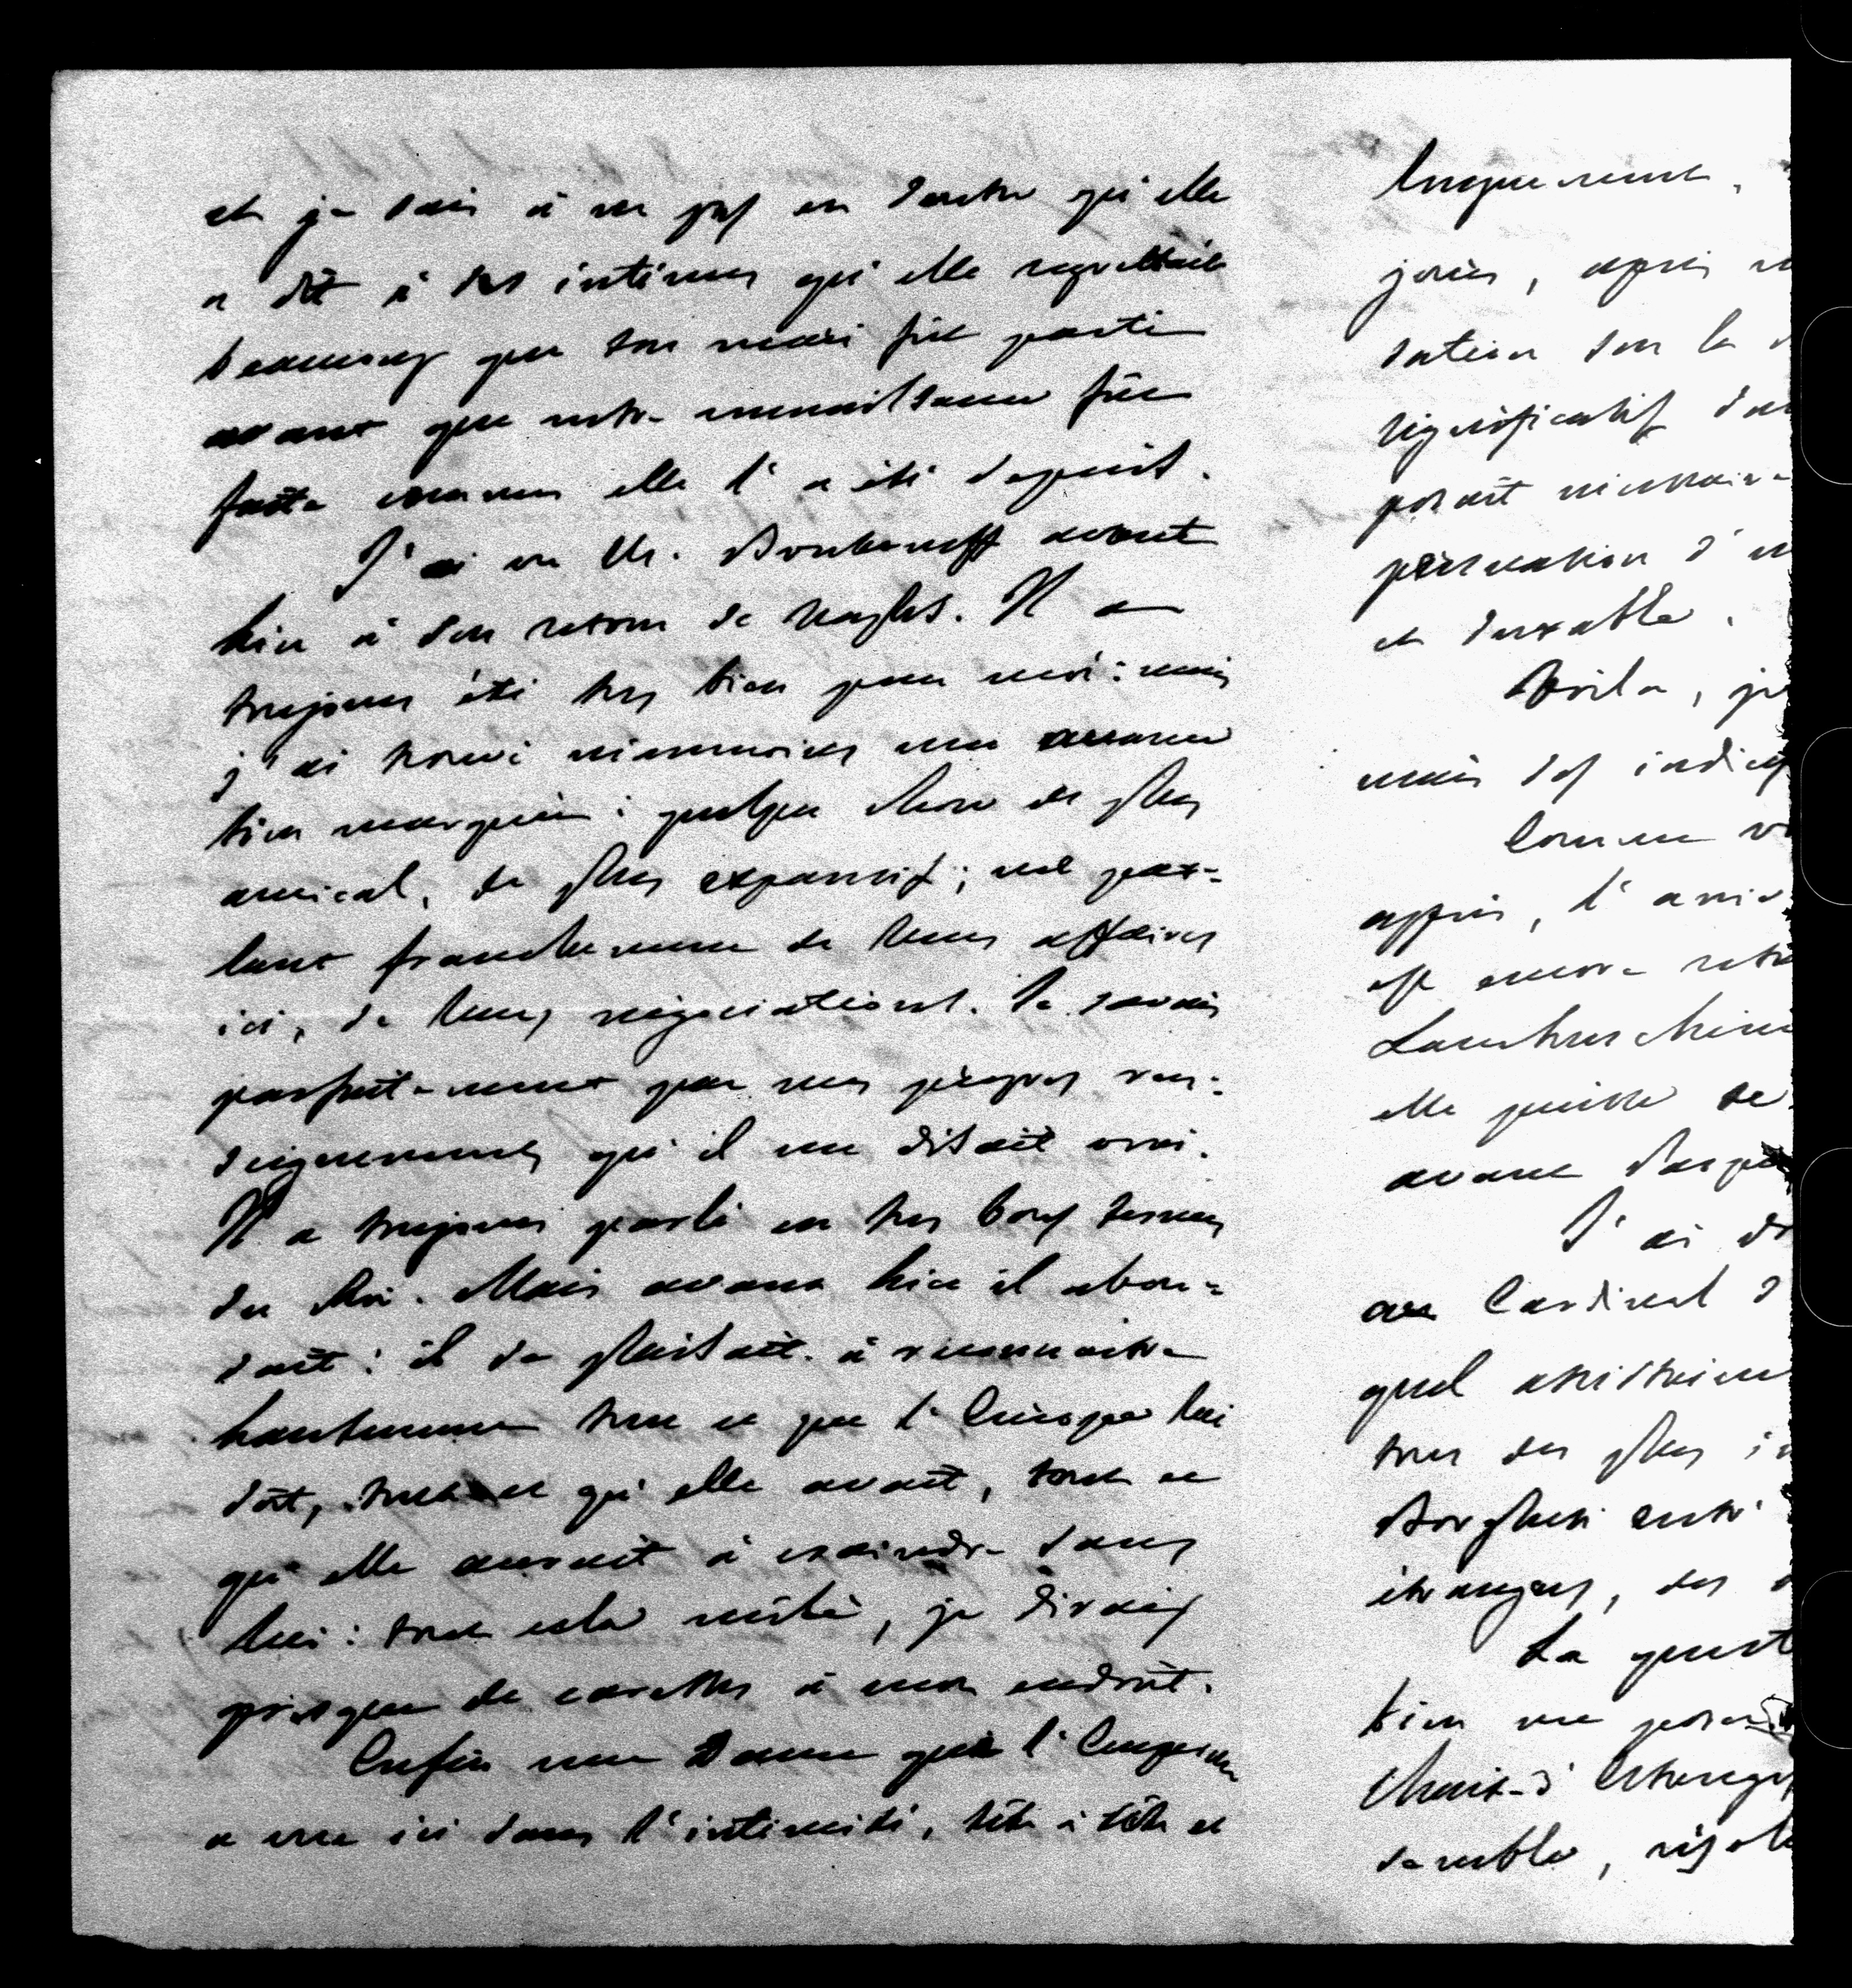 et je sais à ne pas en douter qu'elle
a dit à des intimes qu'elle regrettait
beaucoup que son mari fût parti
avant que notre connaissance fût
faite comme elle l'a été depuis.
J'ai vu Mr. Bouteneff avant
hier à son retour de Naples. Il a
toujours été très bien pour moi : mais
j'ai trouvé néanmoins une nuance
bien marquée : quelque chose de plus
amical, de plus expansif ; me par-
lant franchement de leurs affaires
ici, de leurs négociations. Je savais
parfaitement par mes propres ren-
seignements qu'il me disait vrai.
Il a toujours parlé en très bons termes
du Roi. Mais avant hier il abon-
dait : il se plaisait à reconnaître
hautement tout ce que l'Europe lui
doit, tout ce qu'elle avait, tout ce
qu'elle aurait à craindre sans
lui : tout cela mêlé, je dirais
presque de caresses à mon endroit.
Enfin une Dame que l'Impératrice
a vue ici dans l'intimité, tête à tête et
longuement,
jours, après
sation sur la
significatif
paraît nécessaire
persuasion d'
et durable.
Voilà, je
mais des indices
Comme
après, l'
est encore
Lambruschini
elle puisse se
avant
J'ai
au Cardinal
quel assistaient
tous des plus
Borghese
étrangers, des
La quest
bien me
Mais
semble,